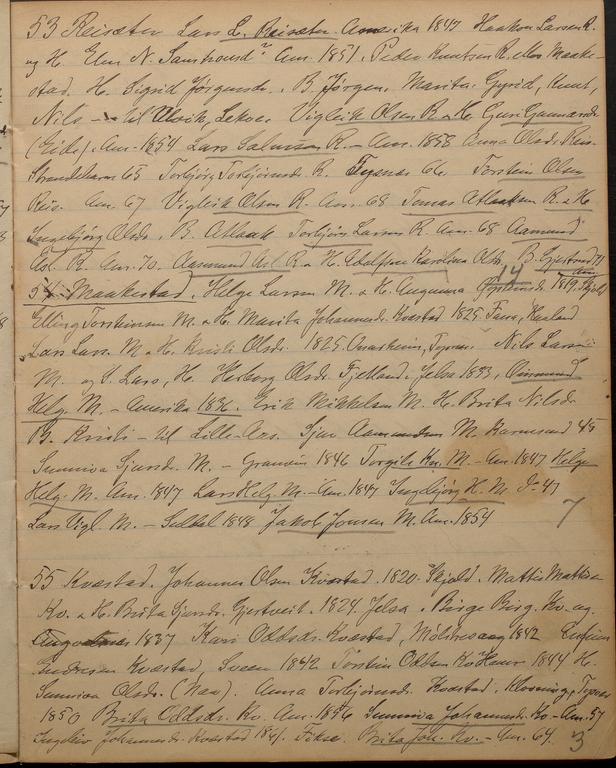 53 Reisæter Lars L. Reisæter. Amerika 1847 Haakon Larsen R.
og H. Elin N. Samkound? Am. 1851. Peder Knutsen R. eller Maake-
stad. H. Sigrid Jørgensdr. B. Jørgen, Marita, Gyrid, Knut,
Nils – til Ulvik, Lekve. Vigleik Olsen R. & H. Guri Gunnarsdr
(Eide). Am. 1854 Lars Salmson R. – Am. 1858 Anna Olsdr Reis.
Strandebarm 65 Torbjørg Torbjørnsdr R. Tysnæs 66. Torstein Olsen
Reis. Am. 67 Vigleik Olsen R. Am. 68 Tomas Atlaksen R. & H.
Ingebjørg Olsdr, B. Atlaak Torbjørn Larsen R. Am. 68 Aamund
R. Am. 70. Aasmund R. & H. Adolfine Karolina Olsdr. B. Gjertrud 71
Am.
54. Maakestad. Helge Larsen M. & H. Augunna 1819. Skjold
14
Elling Torsteinsen M. & H. Marita Johannesdr. Kvæstad 1825.
Lars Lars. M. & H. Kristi Olsdr. 1825. Tysnæs. Nils Larsen
M. og S. Lars, H. Herborg Olsdr. Fjetland. Jelsa 1833,
Helg. M. – Amerika 1836. Erik Mikkelsen M. H. Brita Nilsdr
B. Kristi – til Lille-Aas. Sjur Aamundsen M. 48
Sunniva Sjursdr. M. – Granvin 1846 Torgils Kn. M. – Am. 1847 Helge
Helg. M. Am. 1847 Lars Helg. M. – Am. 1847 Ingebjørg H. M. Do 47
Lars Vigl. M. – Selbel 1848 Jakob Jonsen M. Am. 1854
7
55 Kvæstad. Johannes Olsen Kvæstad. 1820. Skjold. Mattis Mattisen
Kv. & H. Brita Sjursdr. Gjertveit. 1824. Jelsa. Birge Birg. Kv. og
1837 Kari Oddsdr. Kvæstad, 1842
Kvæstad, Sveen 1842 Torstein Oddsen Kv. 1844 H.
Sunniva Olsdr. (Naa). Anna Torbjørnsdr. Kvæstad, Tysnæs
1850 Brita Oddsdr. Kv. Am. 1856 Sunniva Johannesdr. Kv. – Am. 57
Johannesdr. Kvæstad 1861. Fikse. Brita Joh. Kv. – Am. 64.
3